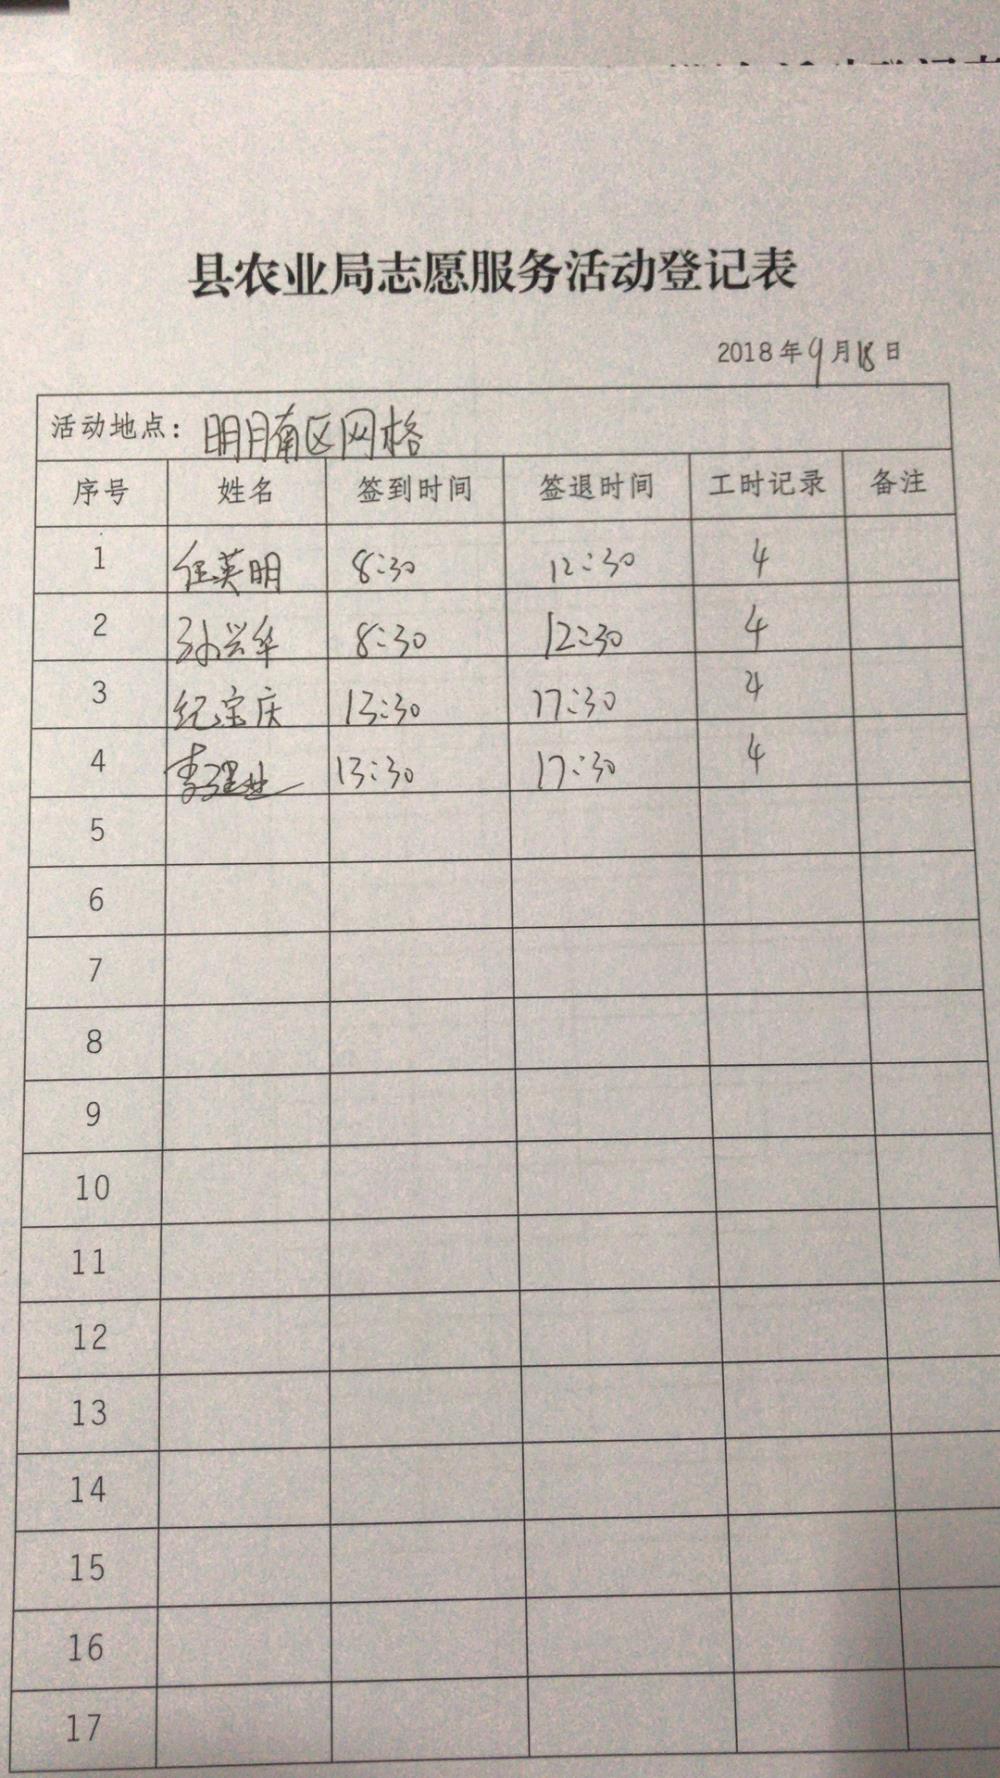 县农业局志愿服务活动登记表
2018年9月18日
活动地点：明月南区网格
序号 姓名 签到时间 签退时间 工时记录 备注
1 任英明 8:30 12:30 4
2 孙兴华 8:30 12:30 4
3 纪宝庆 13:30 17:30 4
4 13:30 17:30 4
5
6
7
8
9
10
11
12
13
14
15
16
17